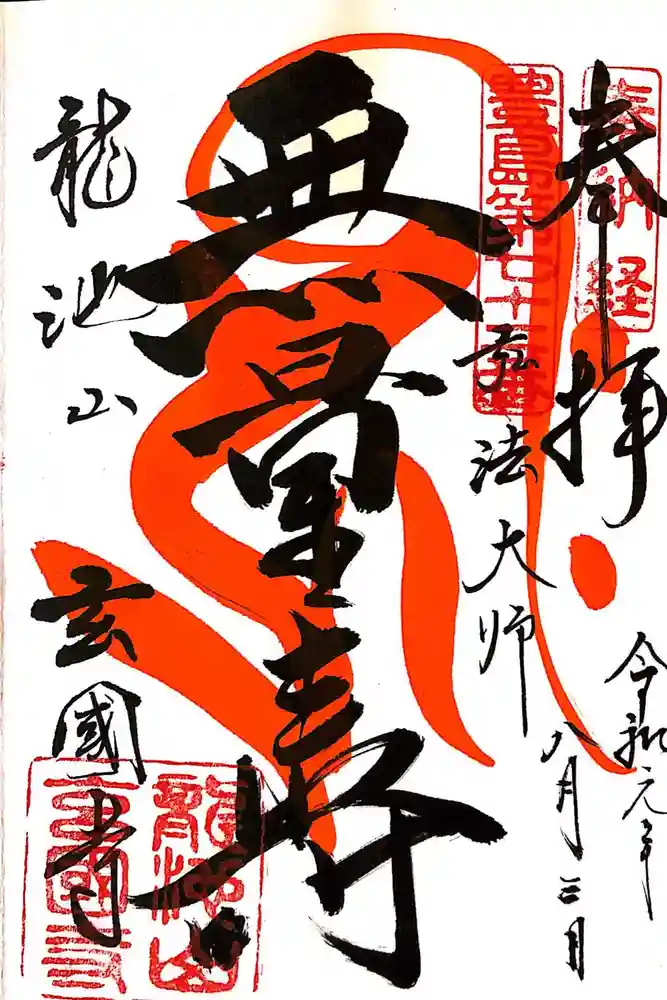 奉拝
奉納経
令和元年
八月三日
豊島第七十
弘法大師
無量寿
龍池山
玄國寺
龍池山
玄國寺